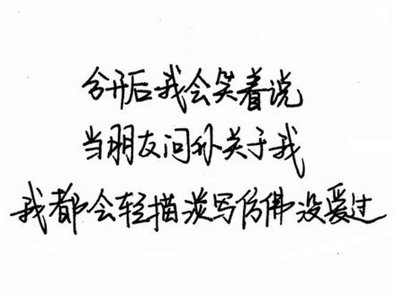 分开后我会笑着说
当朋友问你关于我
我都会轻描淡写仿佛没爱过